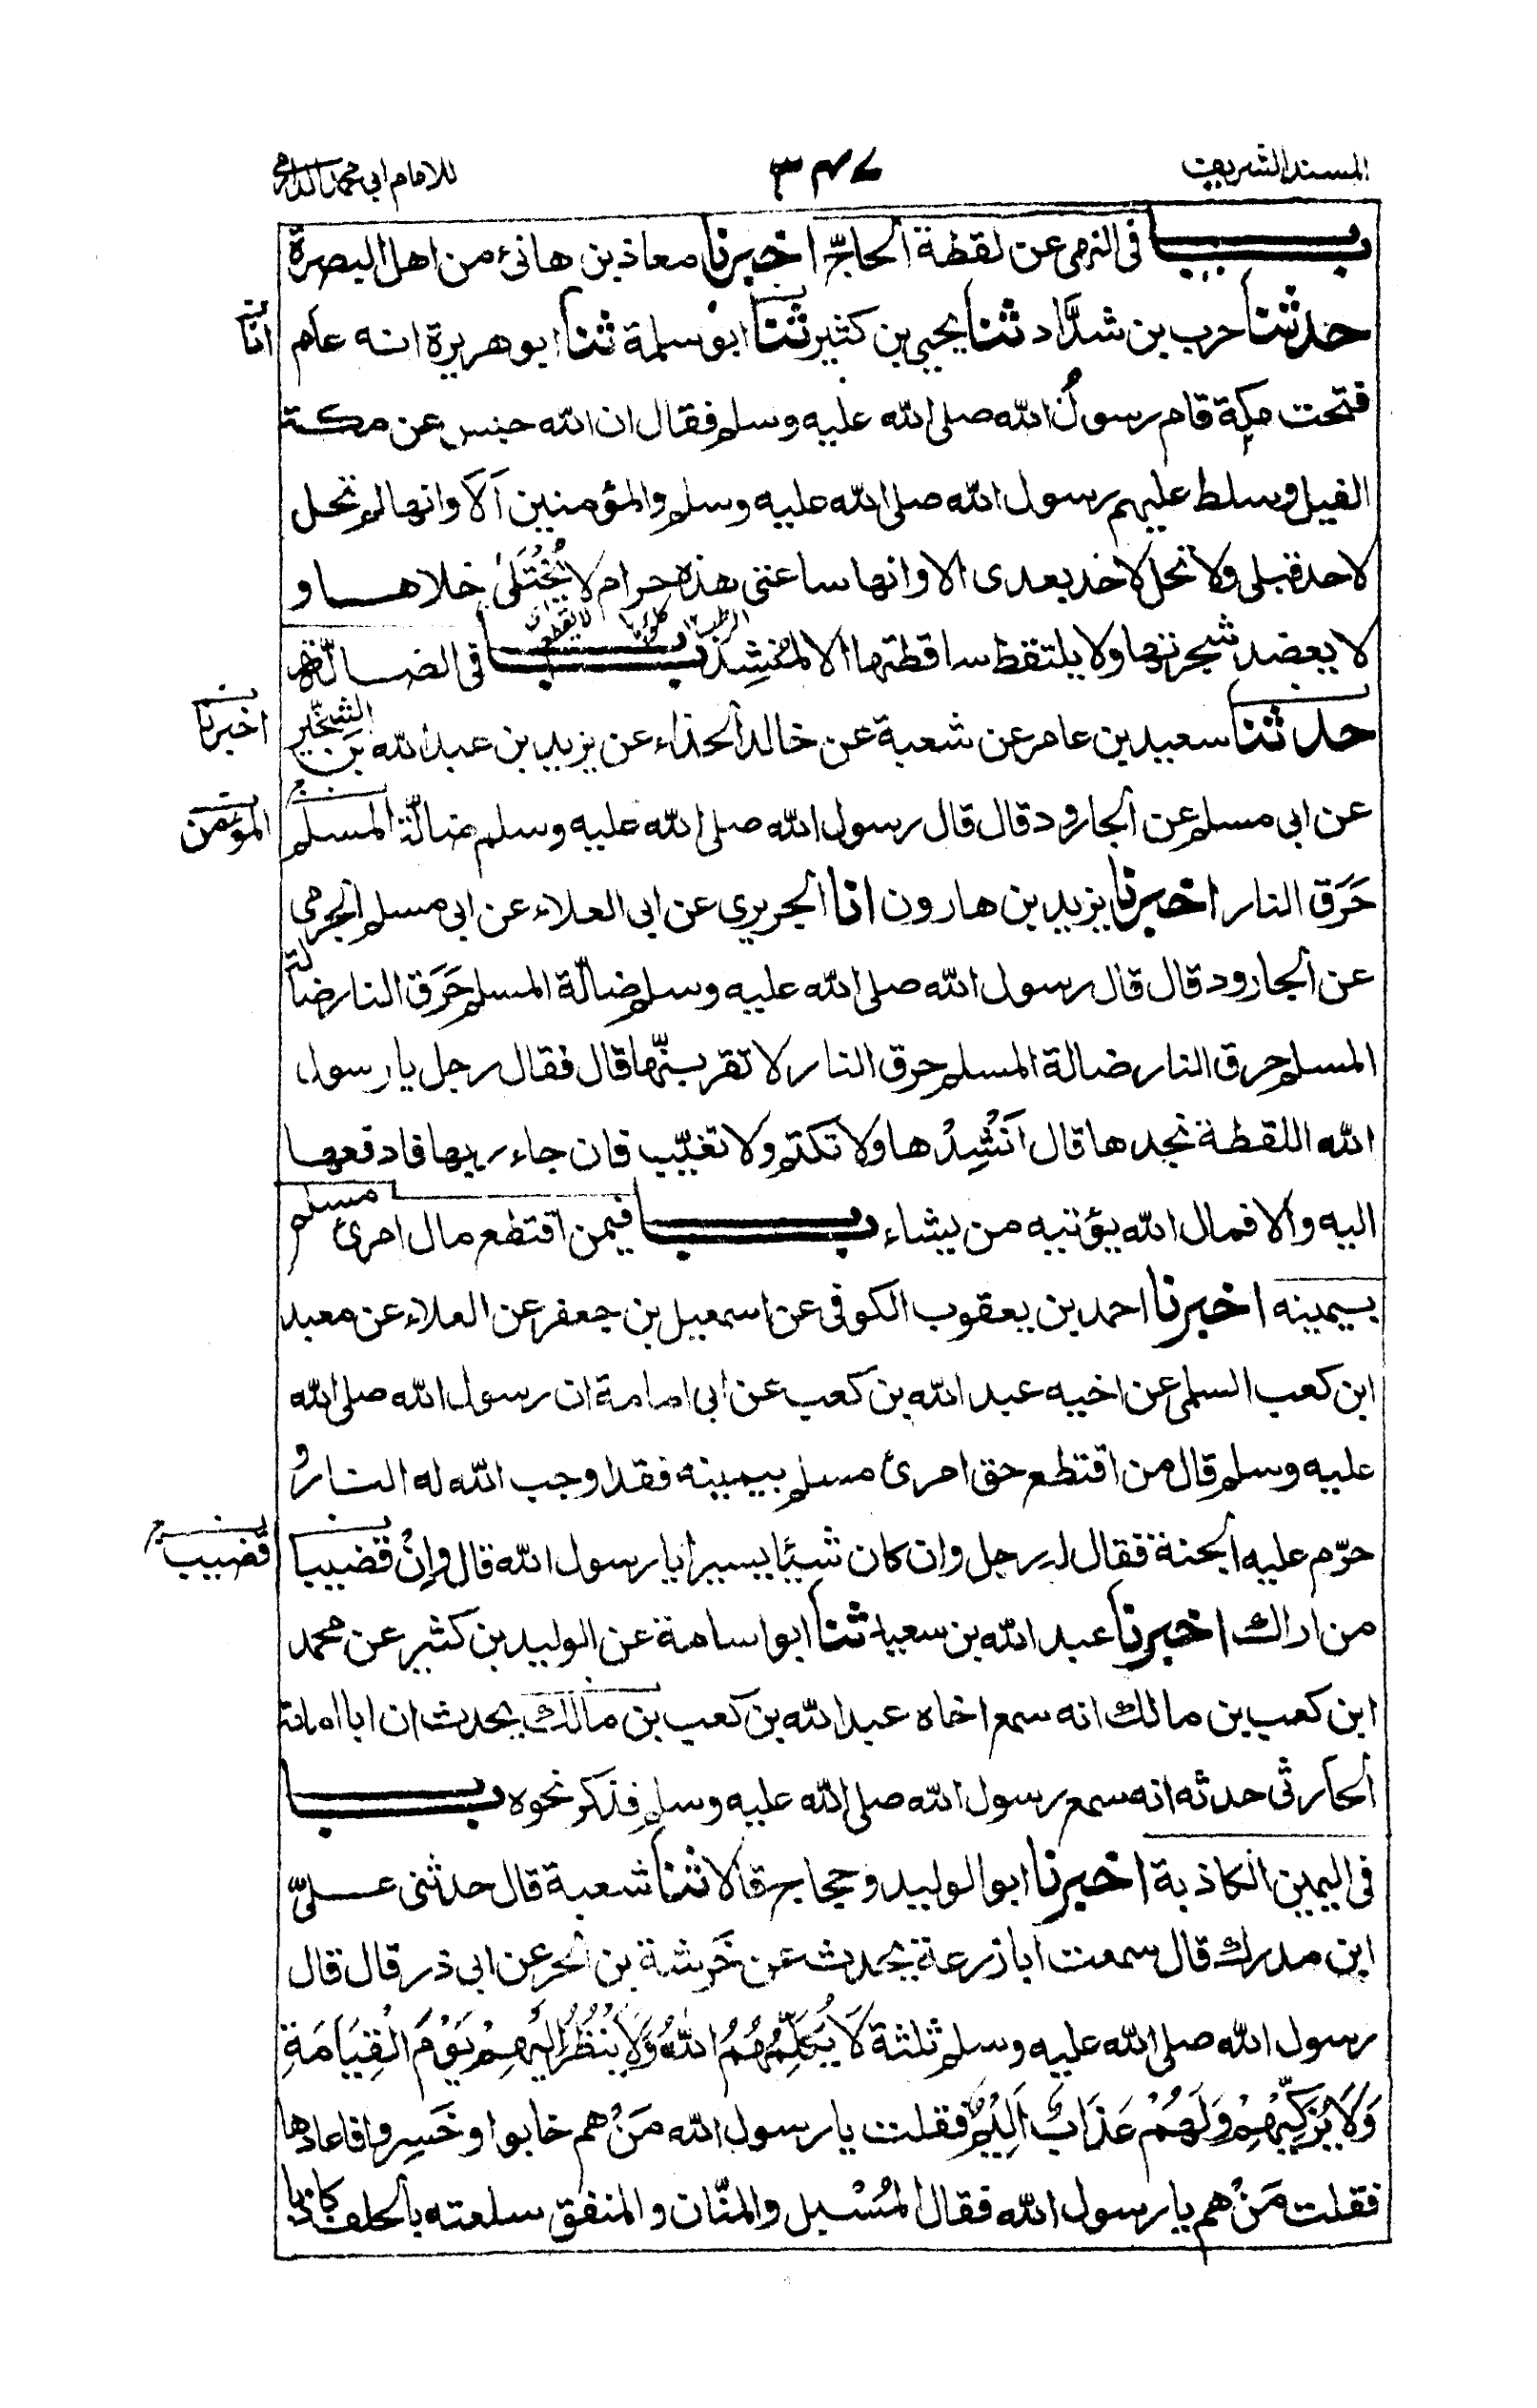 المسند الشريف ٣٤٧ للامام ابى محمد الدارمى
باب فى النهى عن لقطة الحاجّ اخبرنا معاذ بن هانئ من اهل البصرة
حدثنا حرب بن شدّاد ثنا يحيى بن كثير ثنا ابو سلمة ثنا ابو هريرة انه عام
انا
فتحت مكة قام رسول الله صلى الله عليه وسلم فقال ان الله حبس عن مكة
الفيل وسلط عليهم رسول الله صلى الله عليه وسلم والمؤمنين اَلَا وانها لم تحل
لاحد قبلى ولا تحل لاحد بعدى الا وانها ساعتى هذه حرام لا يُخْتَلىٰ خلاها و
لا يعضد شجرتها ولا يلتقط ساقطتها الا لمُنْشِدٍ باب فى الضالّة
حدثنا سعيد بن عامر عن شعبة عن خالد الحذاء عن يزيد بن عبد الله بن الشخّير
اخبرنا
عن ابى مسلم عن الجارود قال قال رسول الله صلى الله عليه وسلم ضالّة المسلم
المؤمن
حَرَق النار اخبرنا يزيد بن هارون انا الجريرى عن ابى العلاء عن ابى مسلم الجرمى
عن الجارود قال قال رسول الله صلى الله عليه وسلم ضالّة المسلم حَرَق النار ضالة
المسلم حرق النار ضالة المسلم حرق النار لا تقربنّها قال فقال رجل يا رسول
الله اللقطة نجدها قال اَنْشِدْها ولا تكتم ولا تغيّب فان جاء ربها فادفعها
اليه والا فمال الله يؤتيه من يشاء باب فيمن اقتطع مال امرئ مسلم
بيمينه اخبرنا احمد بن يعقوب الكوفى عن اسمعيل بن جعفر عن العلاء عن معبد
ابن كعب السلمى عن اخيه عبد الله بن كعب عن ابى امامة ان رسول الله صلى الله
عليه وسلم قال من اقتطع حق امرئ مسلم بيمينه فقد اوجب الله له النار و
حرّم عليه الجنة فقال له رجل وان كان شيئا يسيرا يا رسول الله قال وإنْ قضيبا
قضيب
من اراك اخبرنا عبد الله بن سعيد ثنا ابو اسامة عن الوليد بن كثير عن محمد
ابن كعب بن مالك انه سمع اخاه عبد الله بن كعب بن مالك يحدث ان ابا امامة
الحارثى حدثه انه سمع رسول الله صلى الله عليه وسلم فذكر نحوه باب
فى اليمين الكاذبة اخبرنا ابو الوليد وحجاج قالا ثنا شعبة قال حدثنى علىّ
ابن مدرك قال سمعت ابا زرعة يحدث عن خَرشة بن الحر عن ابى ذر قال قال
رسول الله صلى الله عليه وسلم ثلثة لَا يُكَلِّمُهُمُ اللّٰهُ وَلَا يَنْظُرُ اِلَيْهِمْ يَوْمَ الْقِيَامَةِ
وَلَا يُزَكِّيْهِمْ وَلَهُمْ عَذَابٌ اَلِيْمٌ فقلت يا رسول الله مَنْ هم خابوا وخَسِروا فاعادها
فقلت مَنْ هم يا رسول الله فقال المُسْبِل والمنّان والمنفق سلعته بالحلف كاذبا